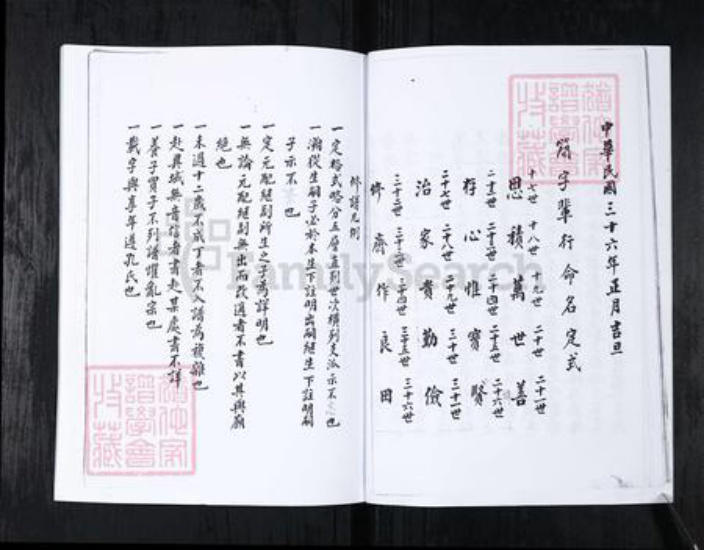 中華民國三十六年正月吉旦
簡字輩行命名定式
十七世 十八世 十九世 二十世 二十一世
思積萬世善
二十二世 二十三世 二十四世 二十五世 二十六世
存心惟寶賢
二十七世 二十八世 二十九世 三十世 三十一世
治家貴勤儉
三十二世 三十三世 三十四世 三十五世 三十六世
修齊作良田
修譜凡例
一定格式略分五層直列世次橫列支派示不也
一嗣從生嗣子必於本生下註明出嗣繼生下註明嗣
子示不也
一定元配繼副所生之子為詳明也
一無論元配繼副無出而改適者不書以其與廟
絕也
一未過十二歲不成丁者不入譜為複雜也
一赴異域無音信者書赴某處書不詳
一養子買子不列譜懼亂宗也
一載字與享年遵孔氏也
FamilySearch